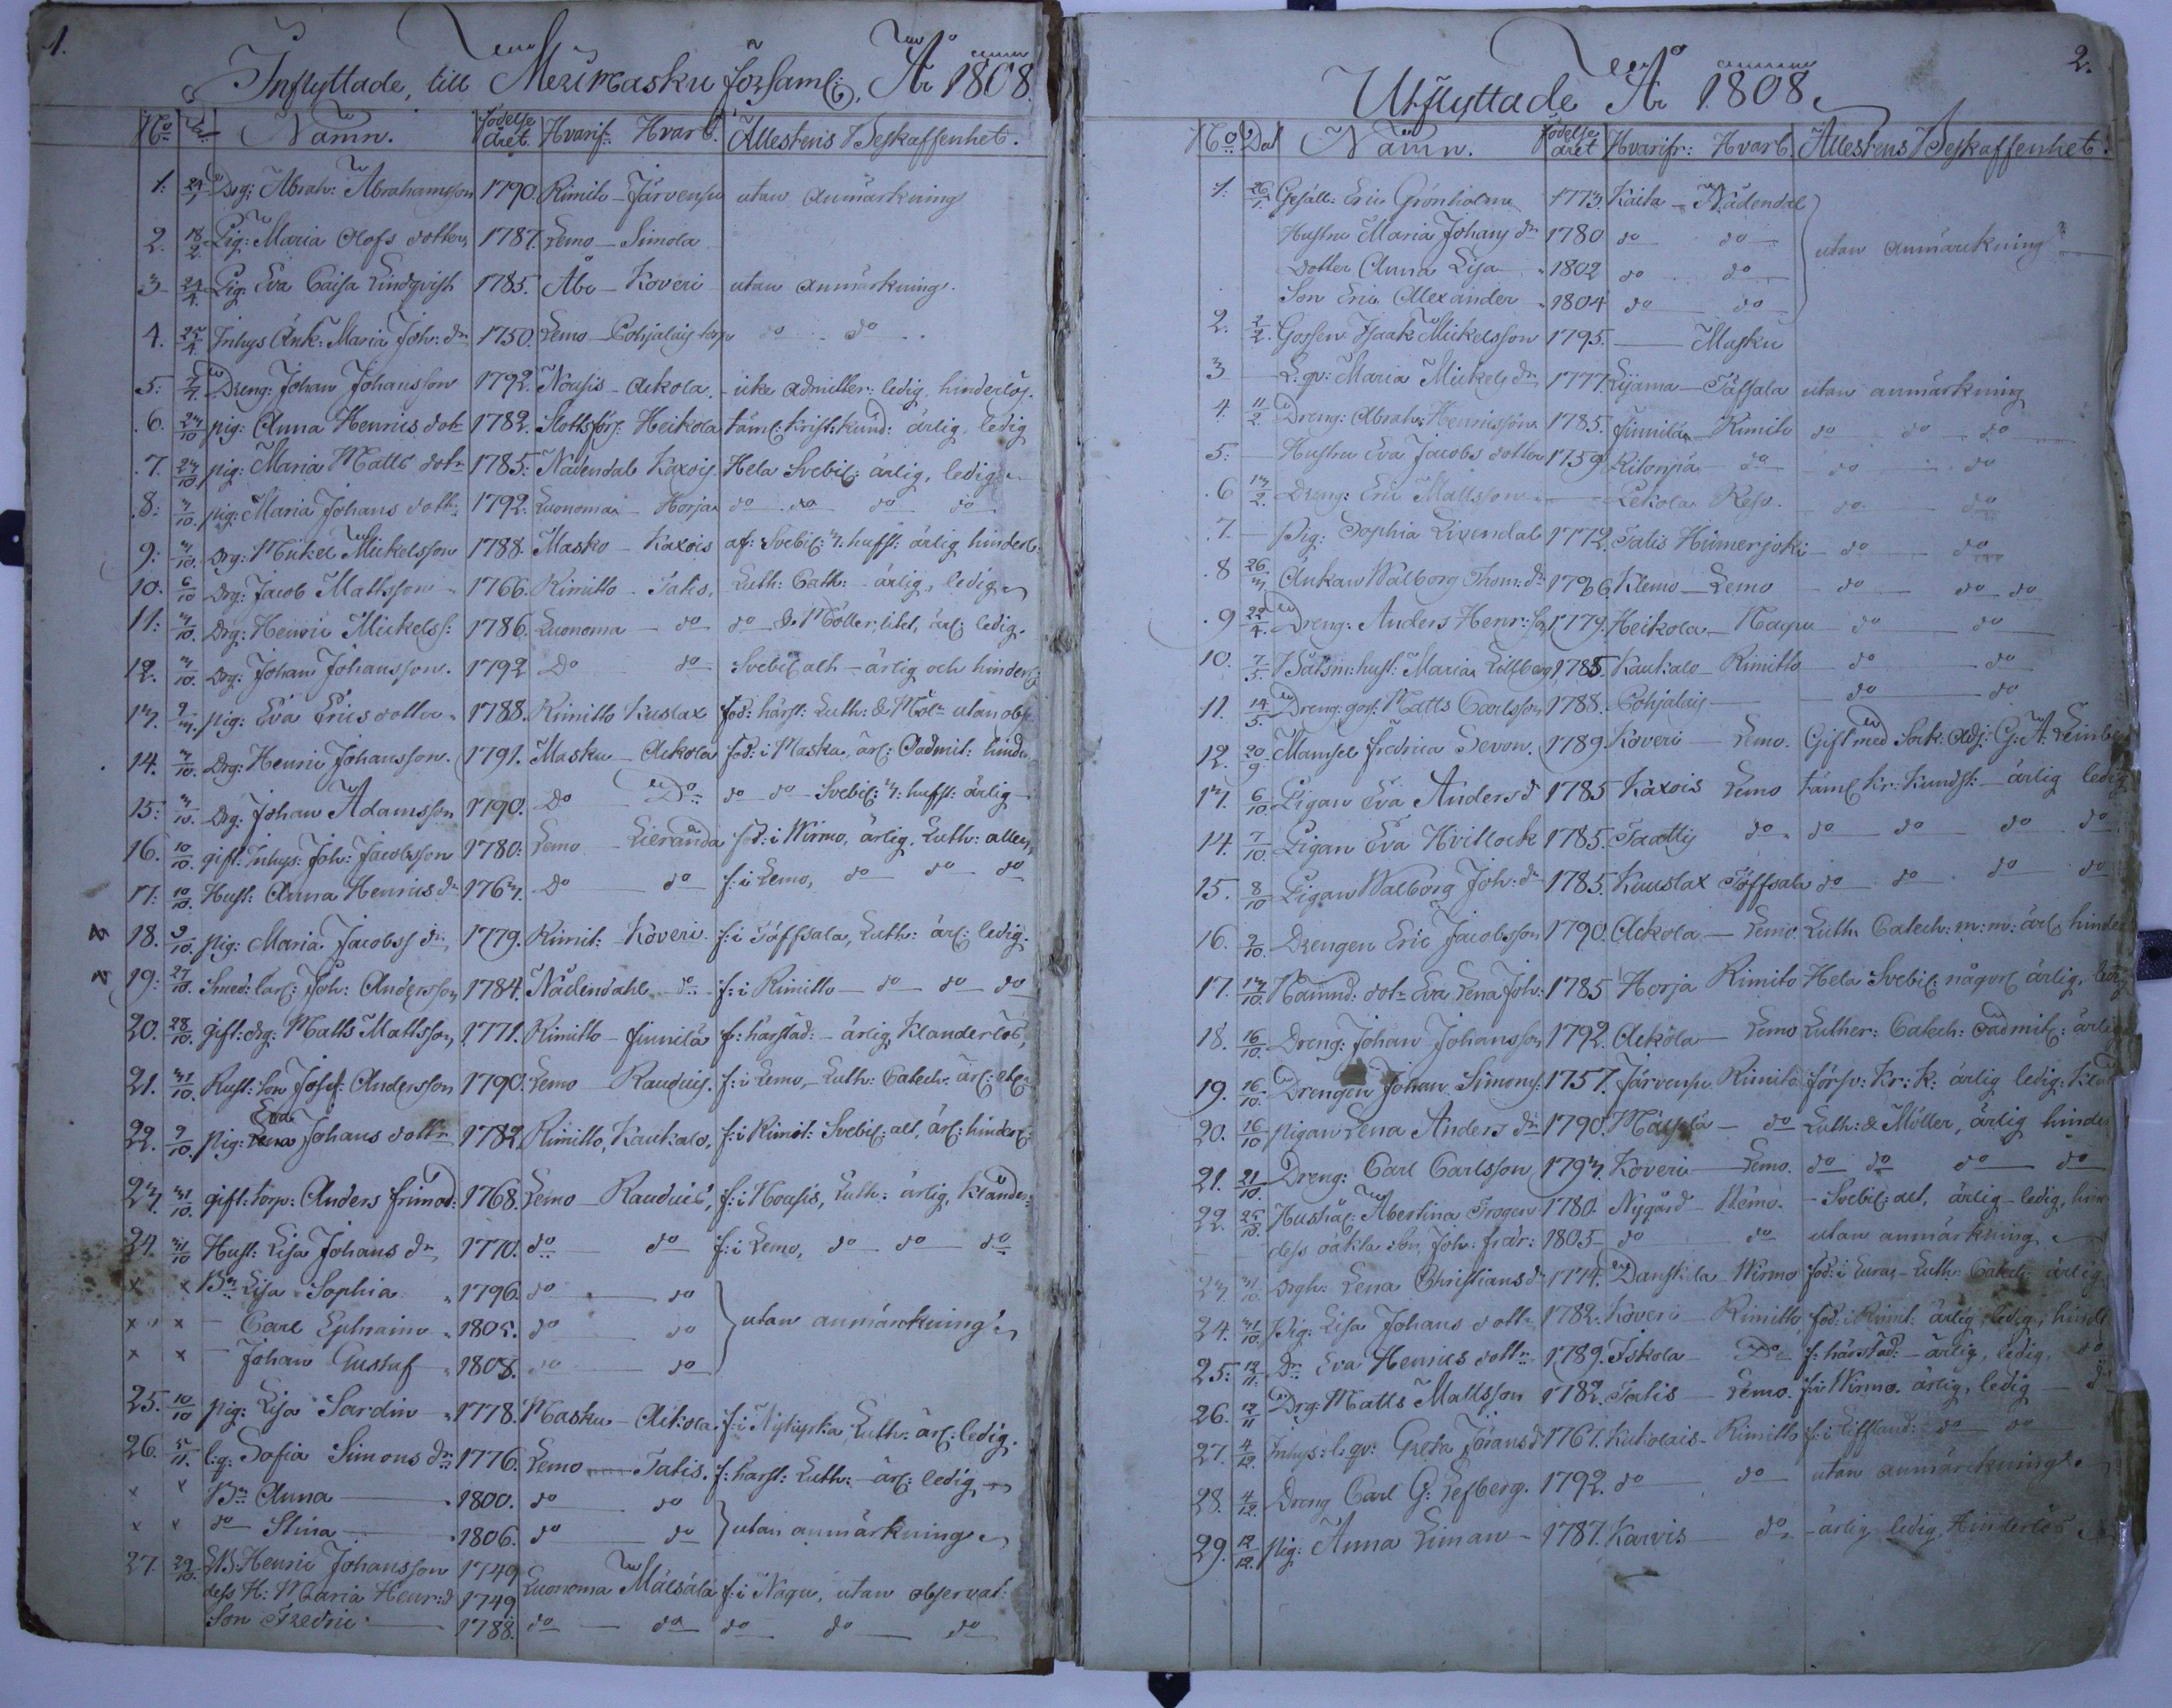 1.
Inflyttade, till Merimasku församl: År 1808.
No Dat Namn. födelse året Hvarifr: Hvart. Attestens Beskaffenhet.
1: Drg: Abrah: Abrahamsson 1790. Rimito – Järvenpä utan anmärkning
2. 18/2 Pig: Maria Olofs dotter 1787. Lemo – Simola
3 24/4. Pig: Eva Caisa Lindqvist 1785. Åbo – Koveri – utan anmärkning.
4. 25/4. Inhys Änk: Maria Joh: dr 1750. Lemo – Pohjalais torp do do
5: 7/7. Dreng: Johan Johansson 1792. Nousis – Aickola. – icke admitter: ledig, hinderlös.
6. 23/10 pig: Anna Henrics dotr 1782. Slottsförs: Heikola täml: Krist: Kund: ärlig, ledig
7. 23/10 pig: Maria Matts dotr 1785: Nådendal Kaxois. Hela Svebil: ärlig, ledig
8: 3/10. pig: Maria Johans dottr: 1792. Luonomaa – Horja do do do do
9: 3/10. Drg: Mickel Mickelsson 1788. Masko – Kaxois af: Svebil: 3: hufst: ärlig hinderl:
10. 6/10 Drg: Jacob Mattsson 1766. Rimitto – Tatis. Luth: Cath: – ärlig, ledig
11: 3/10. Drg: Henric Mickelss: 1786. Luonoma – do do & Möller, itel, ärl: ledig.
12. 3/10. Drg: Johan Johansson. 1792 Do do Svebil alt – ärlig och hinderl:
13. 9/3. pig: Eva Erics dotter 1788. Rimitto Kuslax föd: härst: Luth: & Möl: utan obs:
14. 3/10. Drg: Henric Johansson. 1791. Masku – Aickola föd: i Masku, ärl: Oadmit: hinder
15: 3/10. Drg: Johan Adamsson 1790. Do – Do do do Svebil: 3: hufst: ärlig –
16. 10/10. gift: Inhys: Joh: Jacobsson 1780: Lemo – Lieranda föd: i Wirmo, ärlig, Luth: allen,
17: 10/10. Hust: Anna Henrics dr 1763. Do – do f: i Lemo, do do do
18. 9/10. pig: Maria Jacobss dr 1779. Rimit: Koveri. f: i Töffsala, Luth: ärl: ledig.
19: 27/10. Smed: lärl: Joh: Andersson 1784. Nådendahl do f: i Rimitto – do do do
20. 28/10. gift: drg: Matts Mattsson 1771. Rimitto – finnilä f: härstäd: – ärlig, Klanderlös,
21. 31/10. Rust: son Josef: Andersson 1790. Lemo Rauduis. f: i Lemo, Luth: Catech: ärl: etc:
22. 9/10. pig: Eva Johans dottr 1782. Rimitto, Kaukalo, f: i Rimit: Svebil: alt, ärl: hinderl:
23. 31/10. gift: torp: Anders frimod: 1768. Lemo – Rauduis, f: i Nousis, Luth: ärlig, Klander:
24. 31/10 Hust: Lisa Johans dr 1770. do do f: i Lemo, do do do
x x Bn Lisa Sophia 1796. do do
x x – Carl Ephraim 1805. do do } utan anmärckning
x x – Johan Gustaf 1808. do do
25. 10/10 pig: Lisa Sardin 1778. Masku – Aikola. f: i Nykyrka, Luth: ärl: ledig.
26. 5/11. l:q: Sofia Simons dr: 1776. Lemo – Tatis. f: härst: Luth: – ärl: ledig
x x Bn Anna 1800. do do
x x do Stina 1806. do do } utan anmärkning
27. 29/10. Henric Johansson 1749
dess H: Maria Henr: d 1749 Luonoma Mäesälä f: i Nagu, utan observat:
Son Fredric 1788. do do do do do
2.
Utflyttade År 1808.
No Dat Namn. födelse året Hvarifr: Hvart. Attestens Beskaffenhet.
1: 26/1. Gesäll: Eric Grönholm 1773. Kaita – Nådendal
Hustru Maria Johans dr 1780 do do
Dotter Anna Lisa 1802 do do } utan anmärckning
Son Eric Alexander 1804 do do
2. 2/2. Gossen Isaak Mickelsson 1795. — Masku
3 — L: qv: Maria Mickels dr 1777. Lijama – Töffsala utan anmärkning
4. 11/2 Dreng: Abrah: Henricsson 1785. finnilä – Rimito do do do
5: — Hustru Eva Jacobs dotter 1759 Ritonpä do do do
6 13/2. Dreng: Eric Mattsson — Pekola Reso. do do
7. — Pig: Sophia Livendal 1772. Tatis Himerjoki – do do
8 26/3 Änkan Walborg Thom: dr 1736. Klemo – Lemo do do do
9 22/4. Dreng: Anders Henr: son 1779. Heikola – Nagu do do
10. 7/5. Båtsm: hust: Maria Lillberg 1785. Kaukalo – Rimitto do do
11. 14/5. Dreng: gos: Matts Carlsson 1788. Pohjalais do do
12. 20/9 Mamsel fredrica Devon. 1789. Koveri – Lemo. Gift med Sock: Adj: G: A: Leinberg
13. 6/10. Pigan Eva Anders d 1785 Kaxois Lemo täml Kr: Kundst: – ärlig ledig
14. 7/10. Pigan Eva Hvitlock 1785. Taattis do do do do do
15. 8/10 Pigan Walborg Joh: dr 1785. Kuustax Töffsala do do do do
16. 9/10. Drengen Eric Jacobsson 1790. Aickola – Lemo. Luth Catech: m: m: ärl hinder
17. 13/10. Nämnd: dotr Eva Lena Joh: 1785 Horja Rimito Hela Svebil: någorl ärlig, ledig
18. 16/10. Dreng: Johan Johansson 1792. Aickola – Lemo Luther: Catech: oadmit: ärlig
19. 16/10. Drengen Johan Simons: 1757. Järvenpä Rimito försv: Kr: K: ärlig ledig: Klad
20. 16/10 pigan Lena Anders dr 1790. Mäispää – do Luth: & Möller, ärlig hinder
21. 21/10. Dreng: Carl Carlsson 1793. Koveri – Lemo. do do do do
22. 25/10. Hushål: Albertina Trogen 1780. Nygård – Wemo. – Svebil: alt, ärlig – ledig, hin
dess oäkta son, Joh: fredr: 1805 – do do utan anmärkning
23. 31/10. Drgh: Lena Christians dr 1774. Danskila Wirmo föd: i Euraj – Luth: Catech: ärlig
24. 31/10. Pig: Lisa Johans dottr 1782. Koveri – Rimitto föd: i Rimit: ärlig, ledig, hinde
25: 12/11. Dr Eva Henrics dottr 1789. Iskola – Do f: härstäd: – ärlig, ledig, do
26. 12/11 Drg: Matts Mattsson 1782. Tatis – Lemo. f: i Wirmo. ärlig, ledig – do
27. 4/12. Inhys: l: qv: Greta Jörans d 1761. Kukolais – Rimitto f: i Liffland: do do
28. 4/12. Dreng Carl G: Lefberg. 1792. do do utan anmärckning
29. 12/12. pig: Anna Liman – 1787. Karvis do – ärlig ledig, Hinderlös